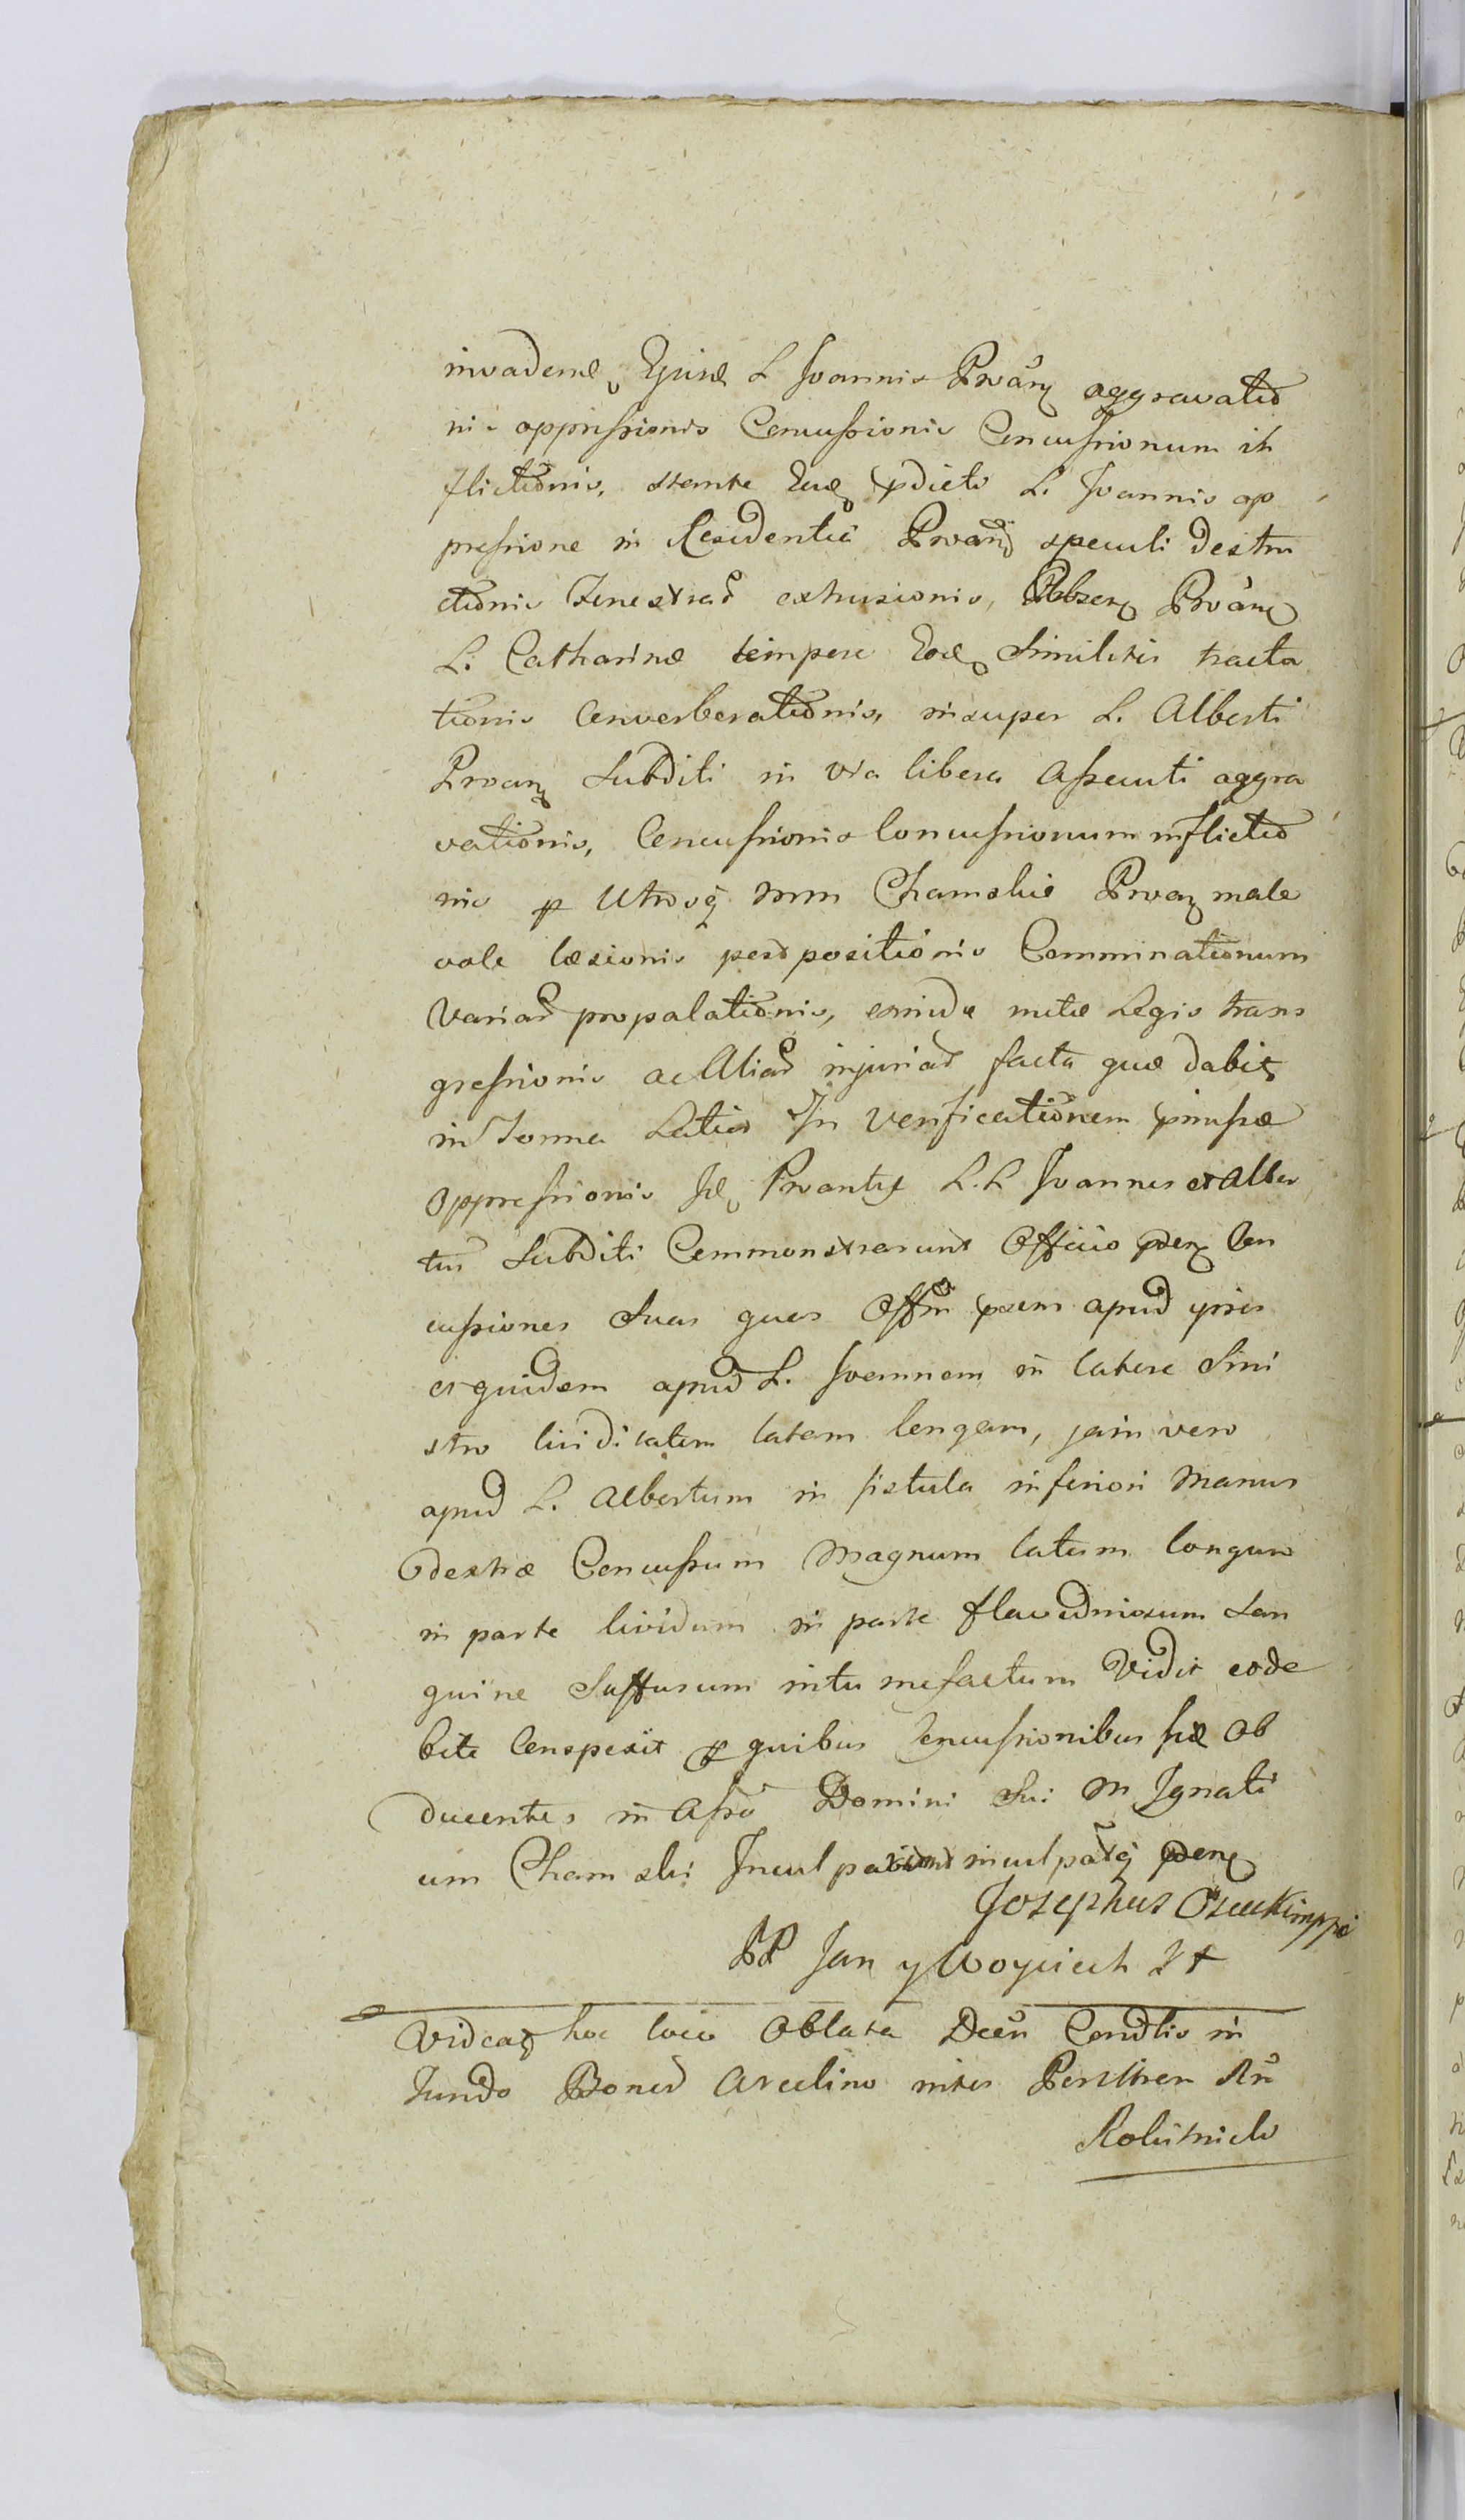 invadendi, Ejusd L Joannis Prότη aggravatio
nis oppressionis Concussionis Concussionum in
flictionis, stante Ead pdicti L. Joannis op
pressione in Residentia Prvand speculi destru
ctionis Fenestrar extrusionis, Prvan
L. Catharinæ tempore Eod Simileter tracta
tionis Converberationis, insuper L. Alberti
Prvan Subditi in via libera Assecuti aggra
vationis, Concussionis Concussionum inflictio
nis p Utrosq Mm Chamskie Prvan male
vole læsionis postpositionis Comminationum
Variar propalationis, exinde metæ Legis trans
gressionis ac Aliar injuriar facta quæ dabit
in Forma Latior In Verificationem pmissæ
Oppressionis Iid Prvantes L.L Joannes et Alber
tus Subditi Commonstrarunt Officio pden Con
cussiones Suas quas Offm psens apud ipsos
et quidem apud L. Joannem in latere Sini
stro lividitatem latam longam, jam vero
apud L. Albertum in fistula inferiori Manus
dextræ Concussum Magnum latum longum
in parte lividum in parte flavedinosum San
guine Suffusum intumefactum Vidit et de
bite Conspexit p quibus Concussionibus sic Ob
ducentes in Asso Domini Sui M Ignati
um Chamski Inculpavernt inculpatq pden
Josephus
PP Jan y Woyciech St
Videat hoc loco Oblata Decri Condlis in
Fundo Bonor Arcelino inter Perillren Rn